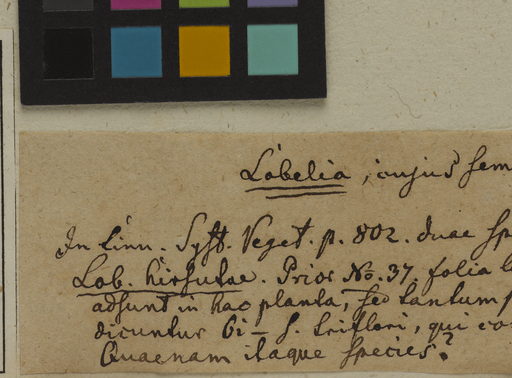 Lobelia, cujus sem
In Linn. Syst. Veget. p. 802. duae Sp
Lob. hirsutae. Prior No. 37. folia
adsunt in hac planta, sed tantum
dicuntur bi- s. triflori, qui co
Quaenam itaque species?